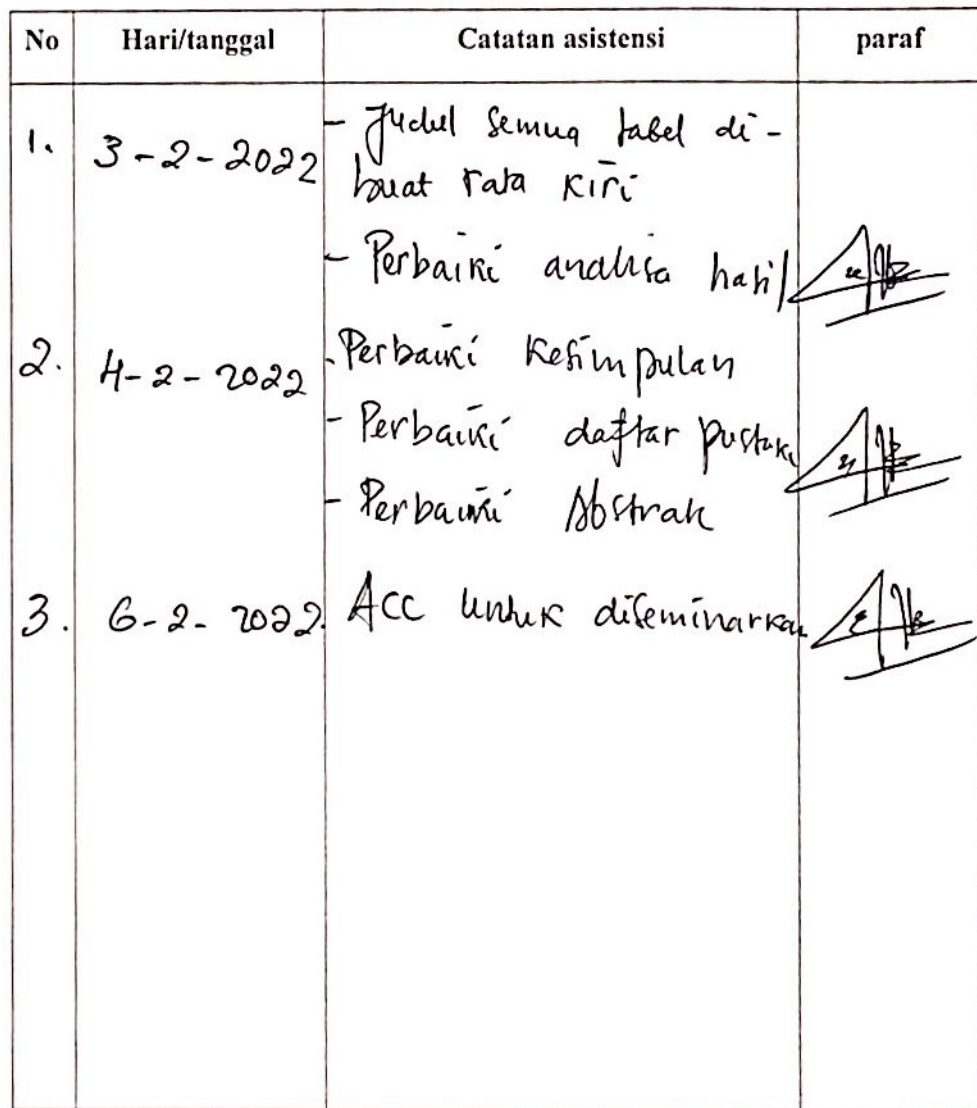 No Hari/tanggal Catatan asistensi paraf
1. 3-2-2022 - Judul semua tabel di-
buat rata kiri
- Perbaiki analisa hasil
2. 4-2-2022 - Perbaiki Kesimpulan
- Perbaiki daftar pustaka
- Perbaiki Abstrak
3. 6-2-2022. ACC untuk diseminarkan